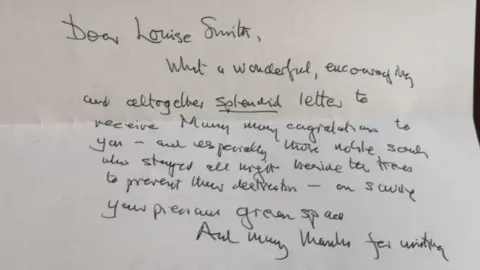 Dear Louise Smith,
What a wonderful, encouraging
and altogether splendid letter to
receive Many many congratulations to
you – and especially those noble souls
who stayed all night beside the trees
to prevent their destruction – on saving
your precious green space
And many thanks for writing